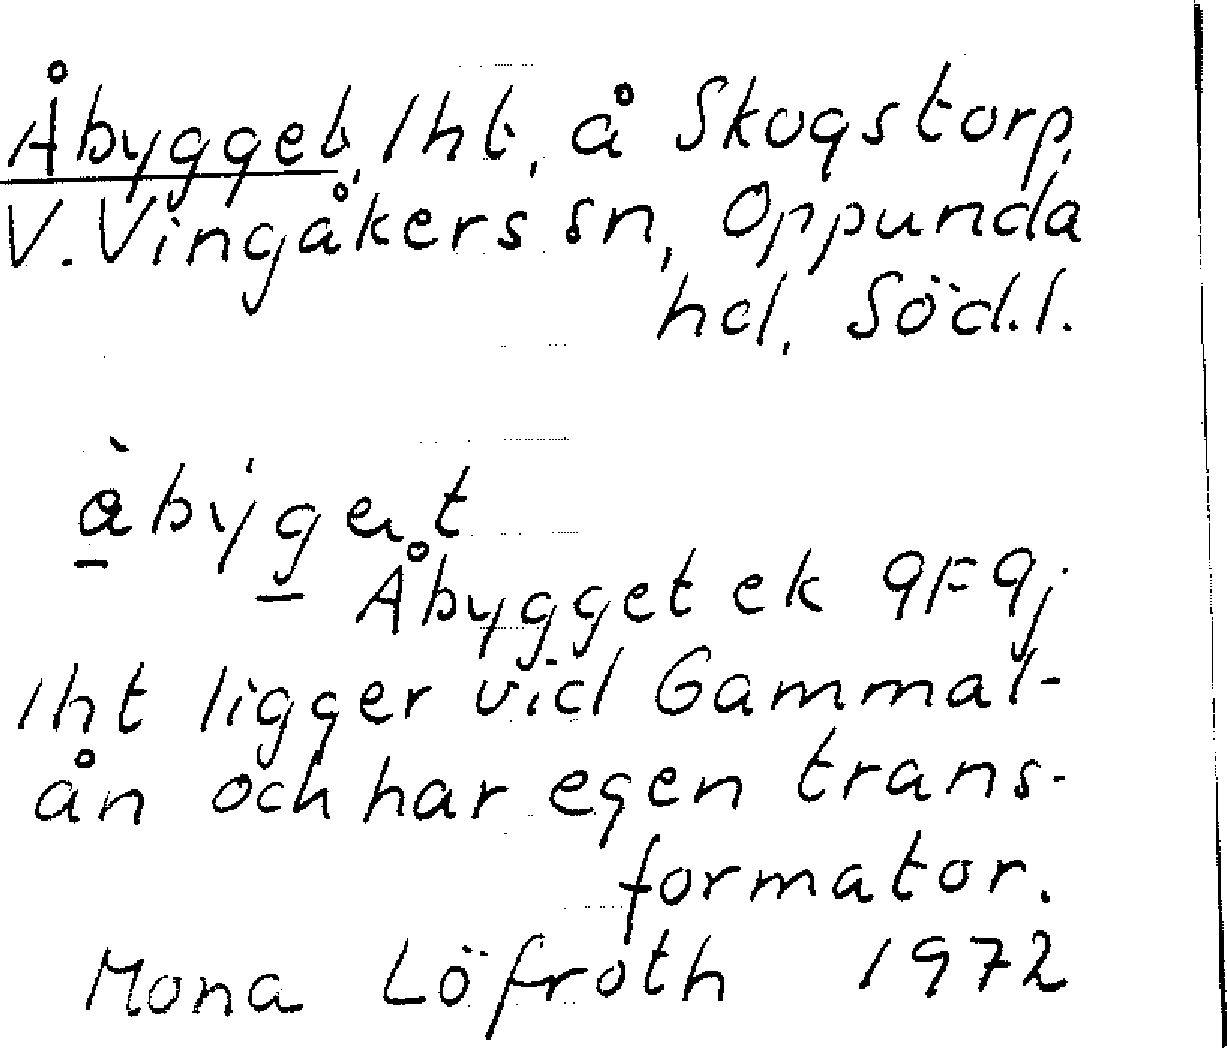 Åbygget, lht, å Skogstorp,
V. Vingåkers sn, Oppunda
hd, Söd.l.
Åbygget ek 9F9j
lht ligger vid Gammal-
ån och har egen trans-
formator.
Mona Löfroth 1972